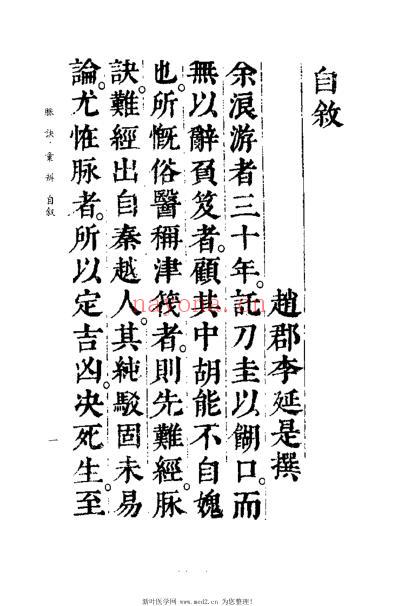 自敘
趙郡李延是撰
余浪游者三十年。託刀圭以餬口。而
無以辭負笈者。顧其中胡能不自媿
也。所慨俗醫稱津筏者。則先難經。脉
訣。難經出自秦越人。其純駁固未易
論。尤恠脉者。所以定吉凶。决死生。至
脉訣·彙辨 自叙
一
nayona.cn
新叶医学网 www.med2.cn 为您整理!